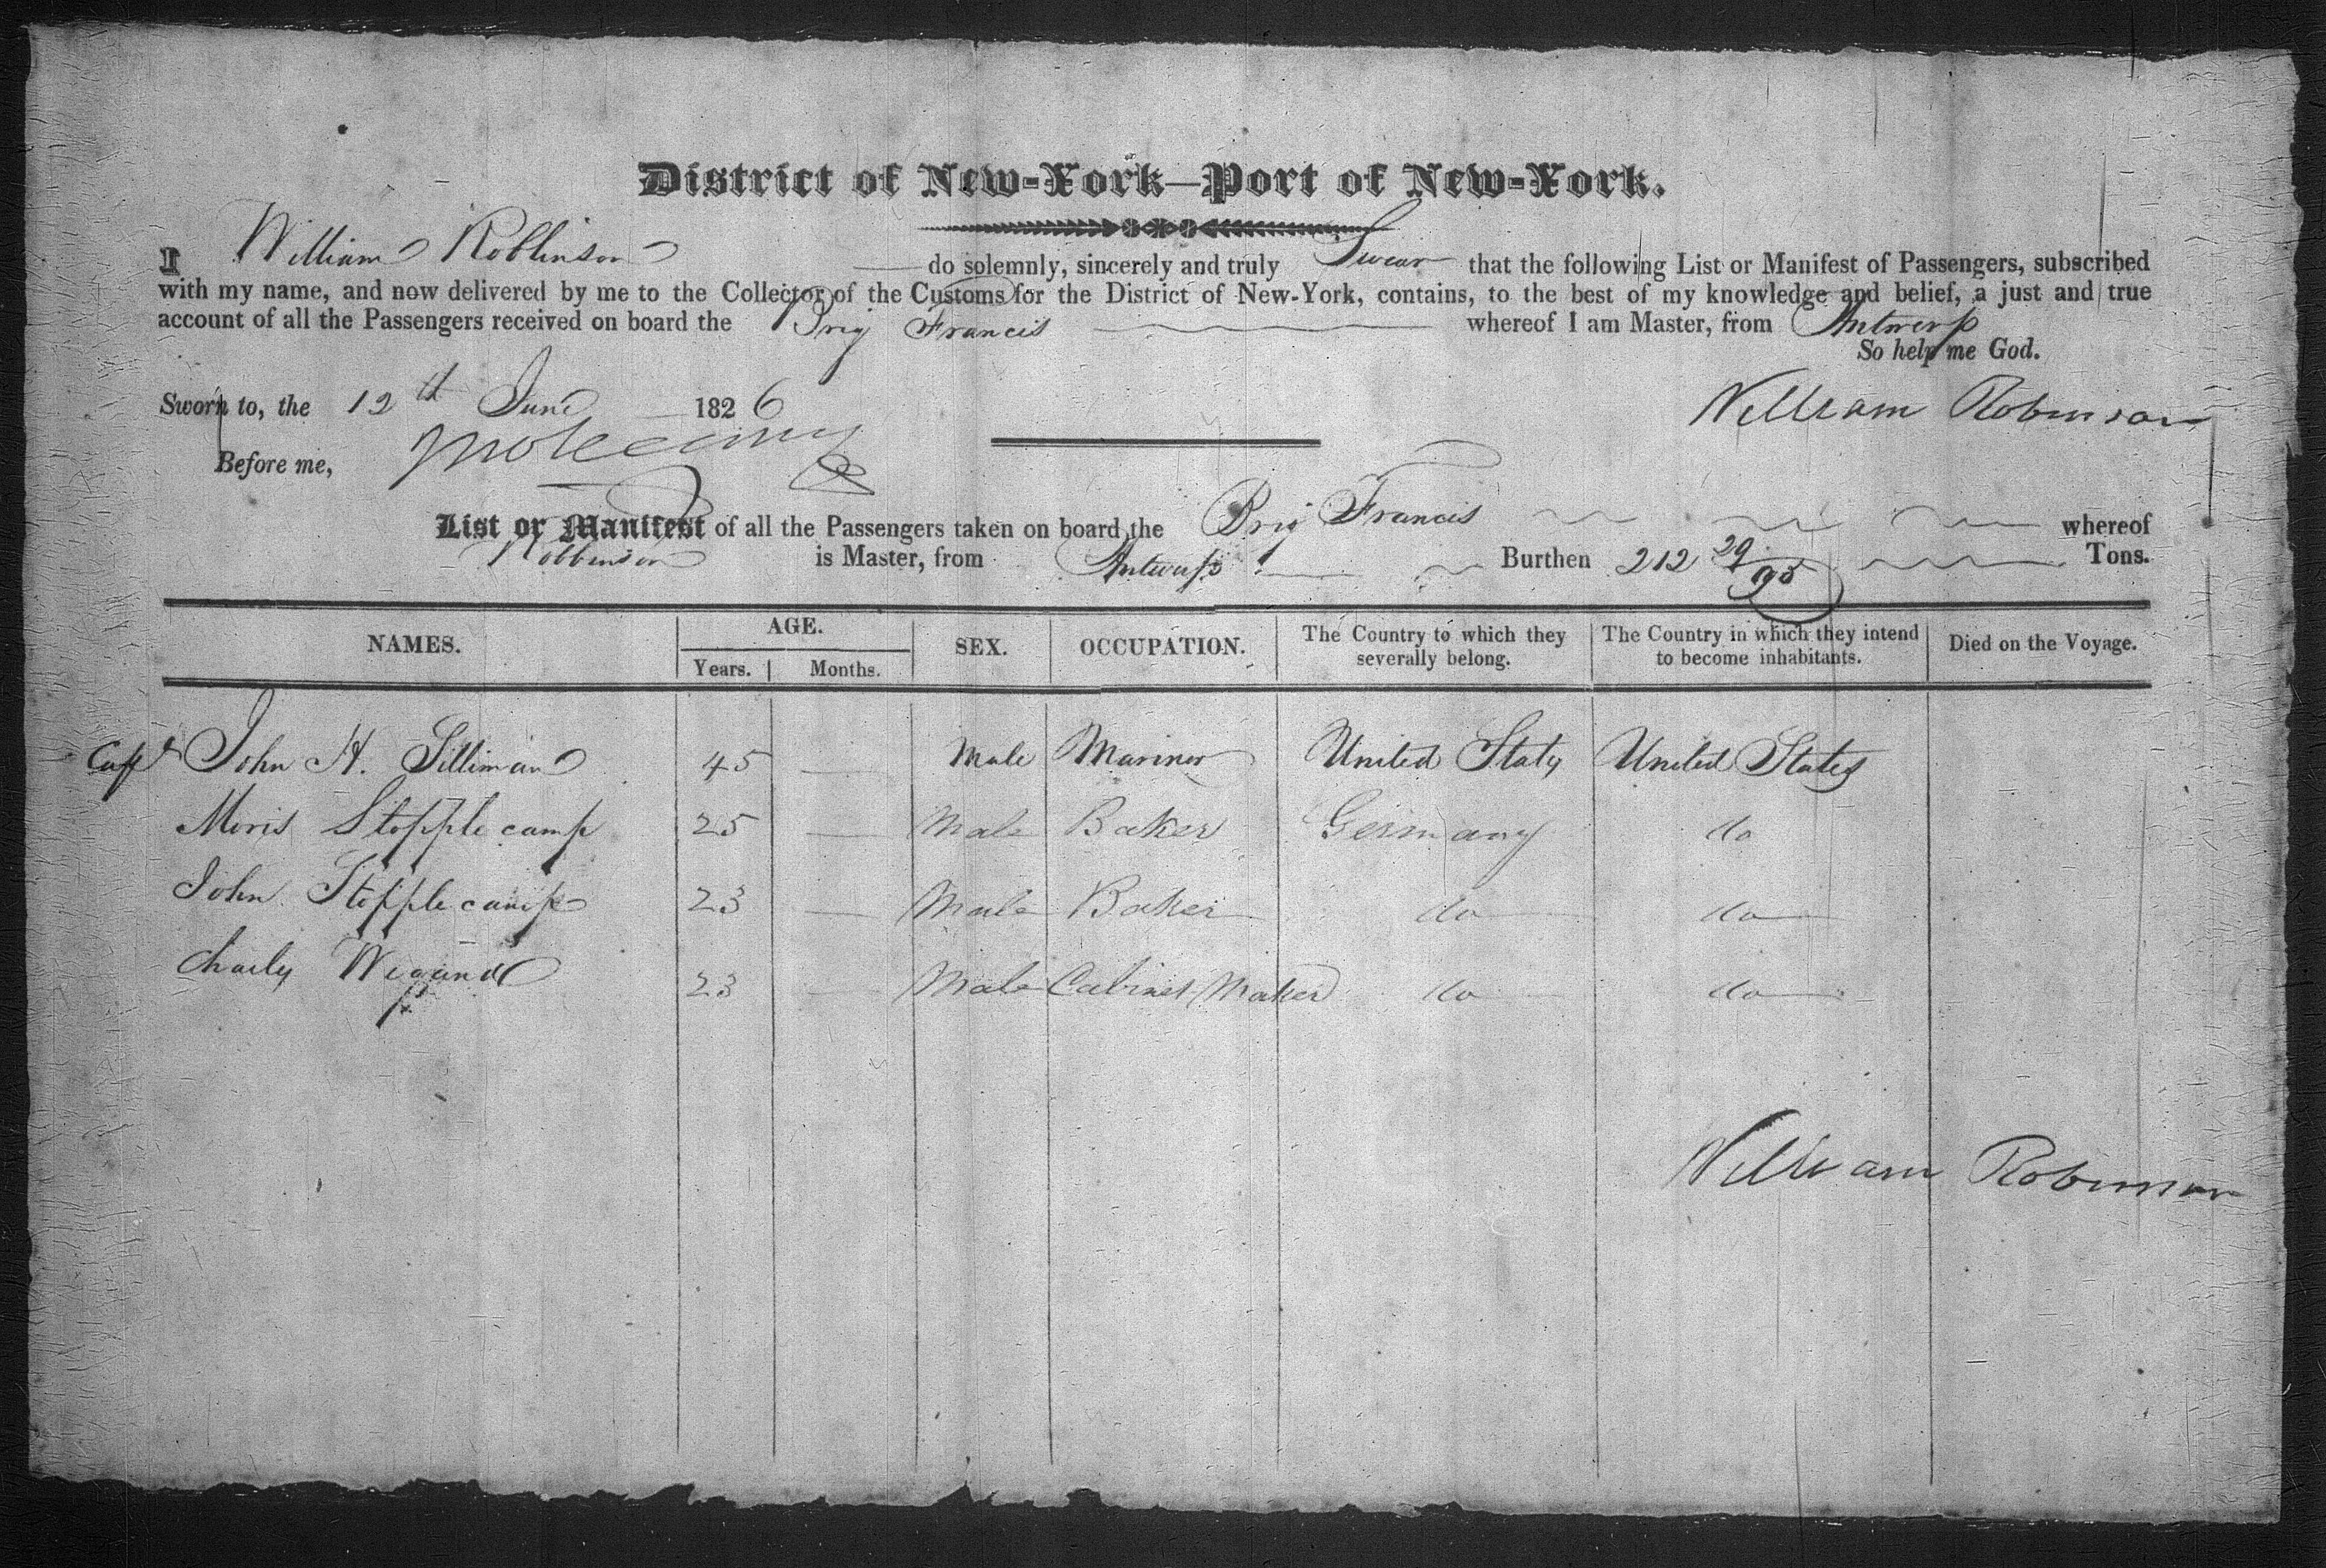 District of New-York—Port of New-York.
I William Robbinson do solemnly, sincerely and truly Swear that the following List or Manifest of Passengers, subscribed
with my name, and now delivered by me to the Collector of the Customs for the District of New-York, contains, to the best of my knowledge and belief, a just and true
account of all the Passengers received on board the Brig Francis whereof I am Master, from Antwerp
So help me God.
Sworn to, the 12th June 1826 William Robinson
Before me,
List or Manifest of all the Passengers taken on board the Brig Francis whereof
Robbinson is Master, from Antwerp Burthen 212 29/95 Tons.
NAMES. AGE. SEX. OCCUPATION. The Country to which they severally belong. The Country in which they intend to become inhabitants. Died on the Voyage.
Years. Months.
Capt John H. Silliman 45 — Male Mariner United States United States
Moris Stopplecamp 25 — Male Baker Germany do
John Stopplecamp 23 — Male Baker do do
Charles Wegand 23 — Male Cabinet Maker do do
William Robinson